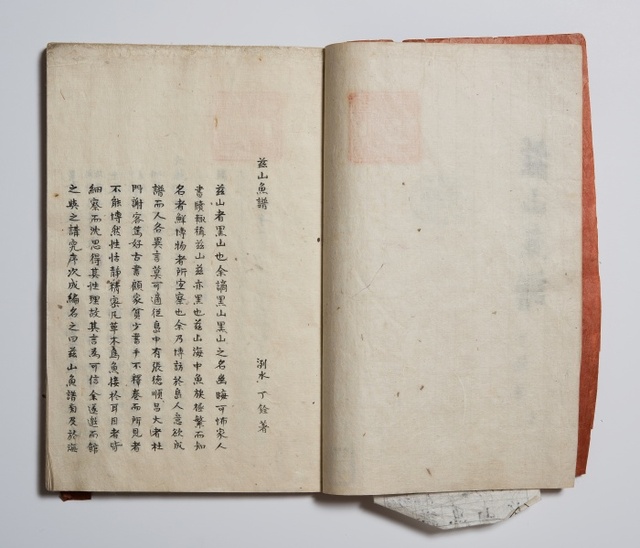 玆山魚譜
洌水 丁銓著
玆山者黑山也余謫黑山黑山之名幽晦可怖家人
書牘輒稱玆山玆亦黑也玆山海中魚族極繁而知
名者鮮博物者所宜察也余乃博訪於島人意欲成
譜而人各異言莫可適從島中有張德順昌大者杜
門謝客篤好古書顧家貧少書手不釋卷而所見者
不能博然性恬靜精密凡草木鳥魚接於耳目者皆
細察而沈思得其性理故其言爲可信余遂邀而館
之與之講究序次成編名之曰玆山魚譜旁及於海